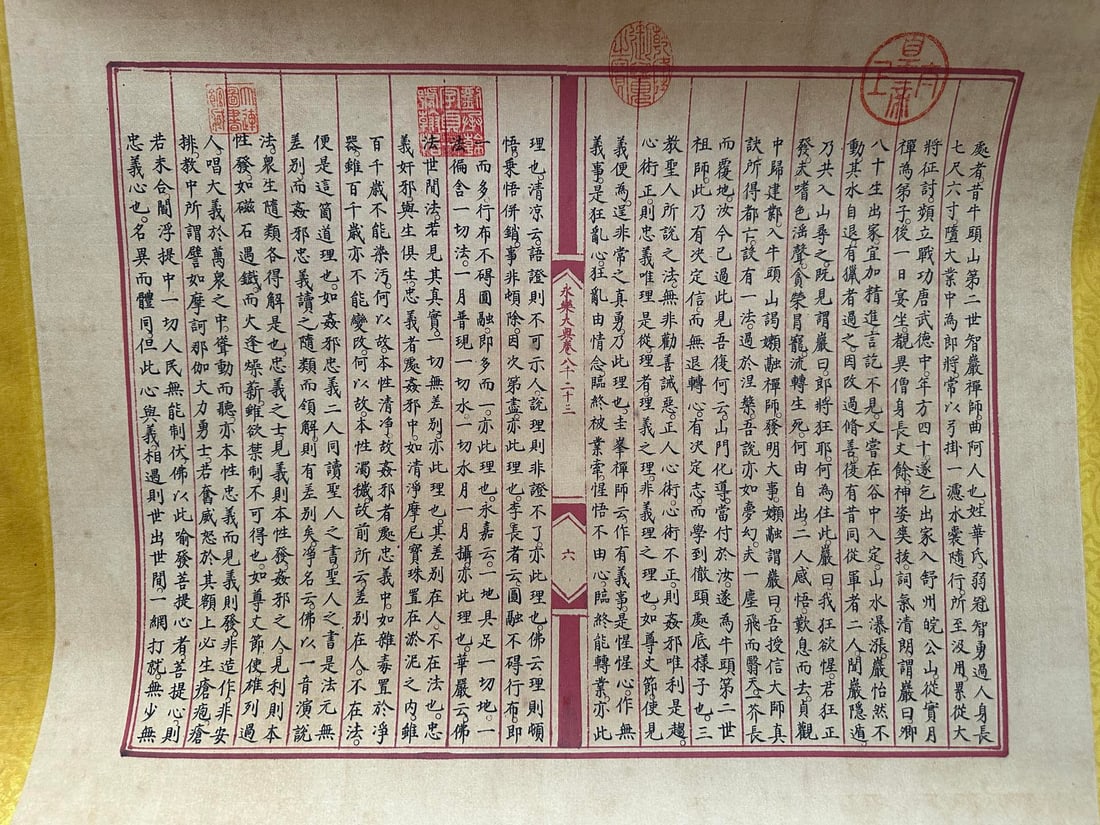 處者昔牛頭山第二世智嚴禪師曲阿人也。姓華氏。弱冠智勇過人。身長
七尺六寸。隋大業中為郎將。常以弓掛一濾水囊隨行。所至汲用。累從大
將征討。頻立戰功。唐武德中。年方四十。遂乞出家。入舒州皖公山。從寶月
禪為弟子。後一日宴坐。覩異僧身長丈餘。神姿爽拔。詞氣清朗。謂嚴曰。卿
八十生出家。宜加精進。言訖不見。又嘗在谷中入定。山水瀑漲。嚴怡然不
動。其水自退。有獵者過之。因改過脩善。復有昔同從軍者二人。聞嚴隱遁。
乃共入山尋之。既見。謂嚴曰。郎將狂耶。何為住此。嚴曰。我狂欲惺。君狂正
發。夫嗜色滛聲。貪榮冒寵。流轉生死。何由自出。二人感悟。歎息而去。貞觀
中歸建鄴。入牛頭山。謁嬾融禪師。發明大事。嬾融謂嚴曰。吾授信大師真
訣。所得都亡。設有一法過於涅槃。吾說亦如夢幻。夫一塵飛而翳天。一芥長
而覆地。汝今已過此見。吾復何云。山門化導。當付於汝。遂為牛頭第二世
祖師。此乃有決定信。而無退轉心。有決定志。而學到徹頭處底樣子也。三
教聖人所說之法。無非勸善誡惡。正人心術。心術不正。則姦邪唯利是趨。
心術正。則忠義唯理是從。理者理義之理。非義理之理也。如尊丈節使。見
義便為。逞非常之真勇。乃此理也。圭峯禪師云。作有義事。是惺惺心。作無
義事。是狂亂心。狂亂由情念。臨終被業牽。惺悟不由心。臨終能轉業。亦此
永樂大典卷八十二十三
六
理也。清凉云。語證則不可示人。說理則非證不了。亦此理也。佛云。理則頓
悟。乗悟併銷。事非頓除。因次第盡。亦此理也。李長者云。圓融不碍行布。即
一而多。行布不碍圓融。即多而一。亦此理也。永嘉云。一地具足一切地。一
法徧含一切法。一月普現一切水。一切水月一月攝。亦此理也。華嚴云。佛
法世間法。若見其真實。一切無差別。亦此理也。其差別在人。不在法也。忠
義奸邪。與生俱生。忠義者處姦邪中。如清淨摩尼寶珠。置在淤泥之內。雖
百千歲不能染污。何以故。本性清淨故。姦邪者處忠義中。如雜毒置於淨
器。雖百千歲亦不能變改。何以故。本性濁穢故。前所云。差別在人。不在法。
便是這箇道理也。如姦邪忠義二人。同讀聖人之書。聖人之書是法。元無
差別。而姦邪忠義讀之。隨類而領解。則有差別矣。淨名云。佛以一音演說
法。衆生隨類各得解。是也。忠義之士。見義則本性發。姦邪之人。見利則本
性發。如磁石遇鐵。而火逢燥薪。雖欲禁制。不可得也。如尊丈節使。雄列過
人。唱大義於萬衆之中。聳動而聽。亦本性忠義。而見義則發。非造作。非安
排。教中所謂。譬如摩訶那伽大力勇士。若奮威怒。於其額上必生瘡疱。瘡
若未合。閻浮提中一切人民。無能制伏。佛以此喻發菩提心者。菩提心。則
忠義心也。名異而體同。但此心與義相遇。則世出世間。一網打就。無少無
乾隆御覽之寶
天津圖書館藏